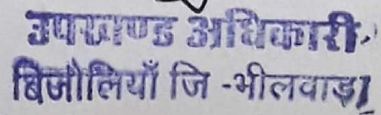 उपखण्ड अधिकारी,
बिजौलियाँ जि -भीलवाड़ा